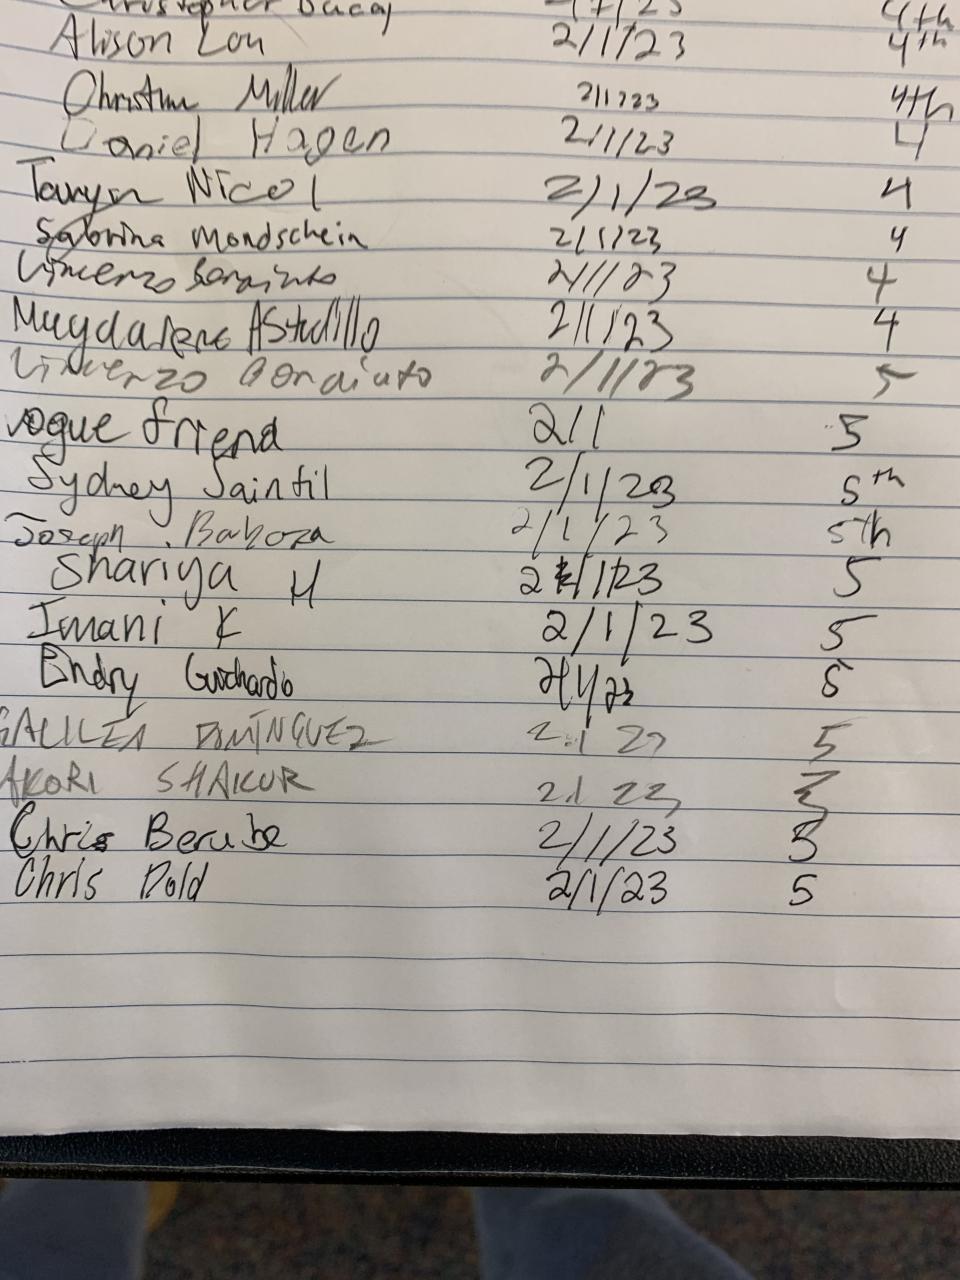 Christopher
Alison Lou 2/1/23 4th
Christina Miller 2/1/23 4th
Daniel Hagen 2/1/23 4
Taryn Nicol 2/1/23 4
Sabrina Mondschein 2/1/23 4
Vincenzo 2/1/23 4
Magdalene Astudillo 2/1/23 4
Vincenzo 2/1/23 5
vogue friend 2/1 5
Sydney Saintil 2/1/23 5th
Joseph . Baboza 2/1/23 5th
Shariya H 2/1/23 5
Imani K 2/1/23 5
Endry Guichardo 2/1/23 5
GALILEA DOMÍNGUEZ 5
AKORI SHAKUR
Chris Berube 2/1/23 5
Chris Dold 2/1/23 5